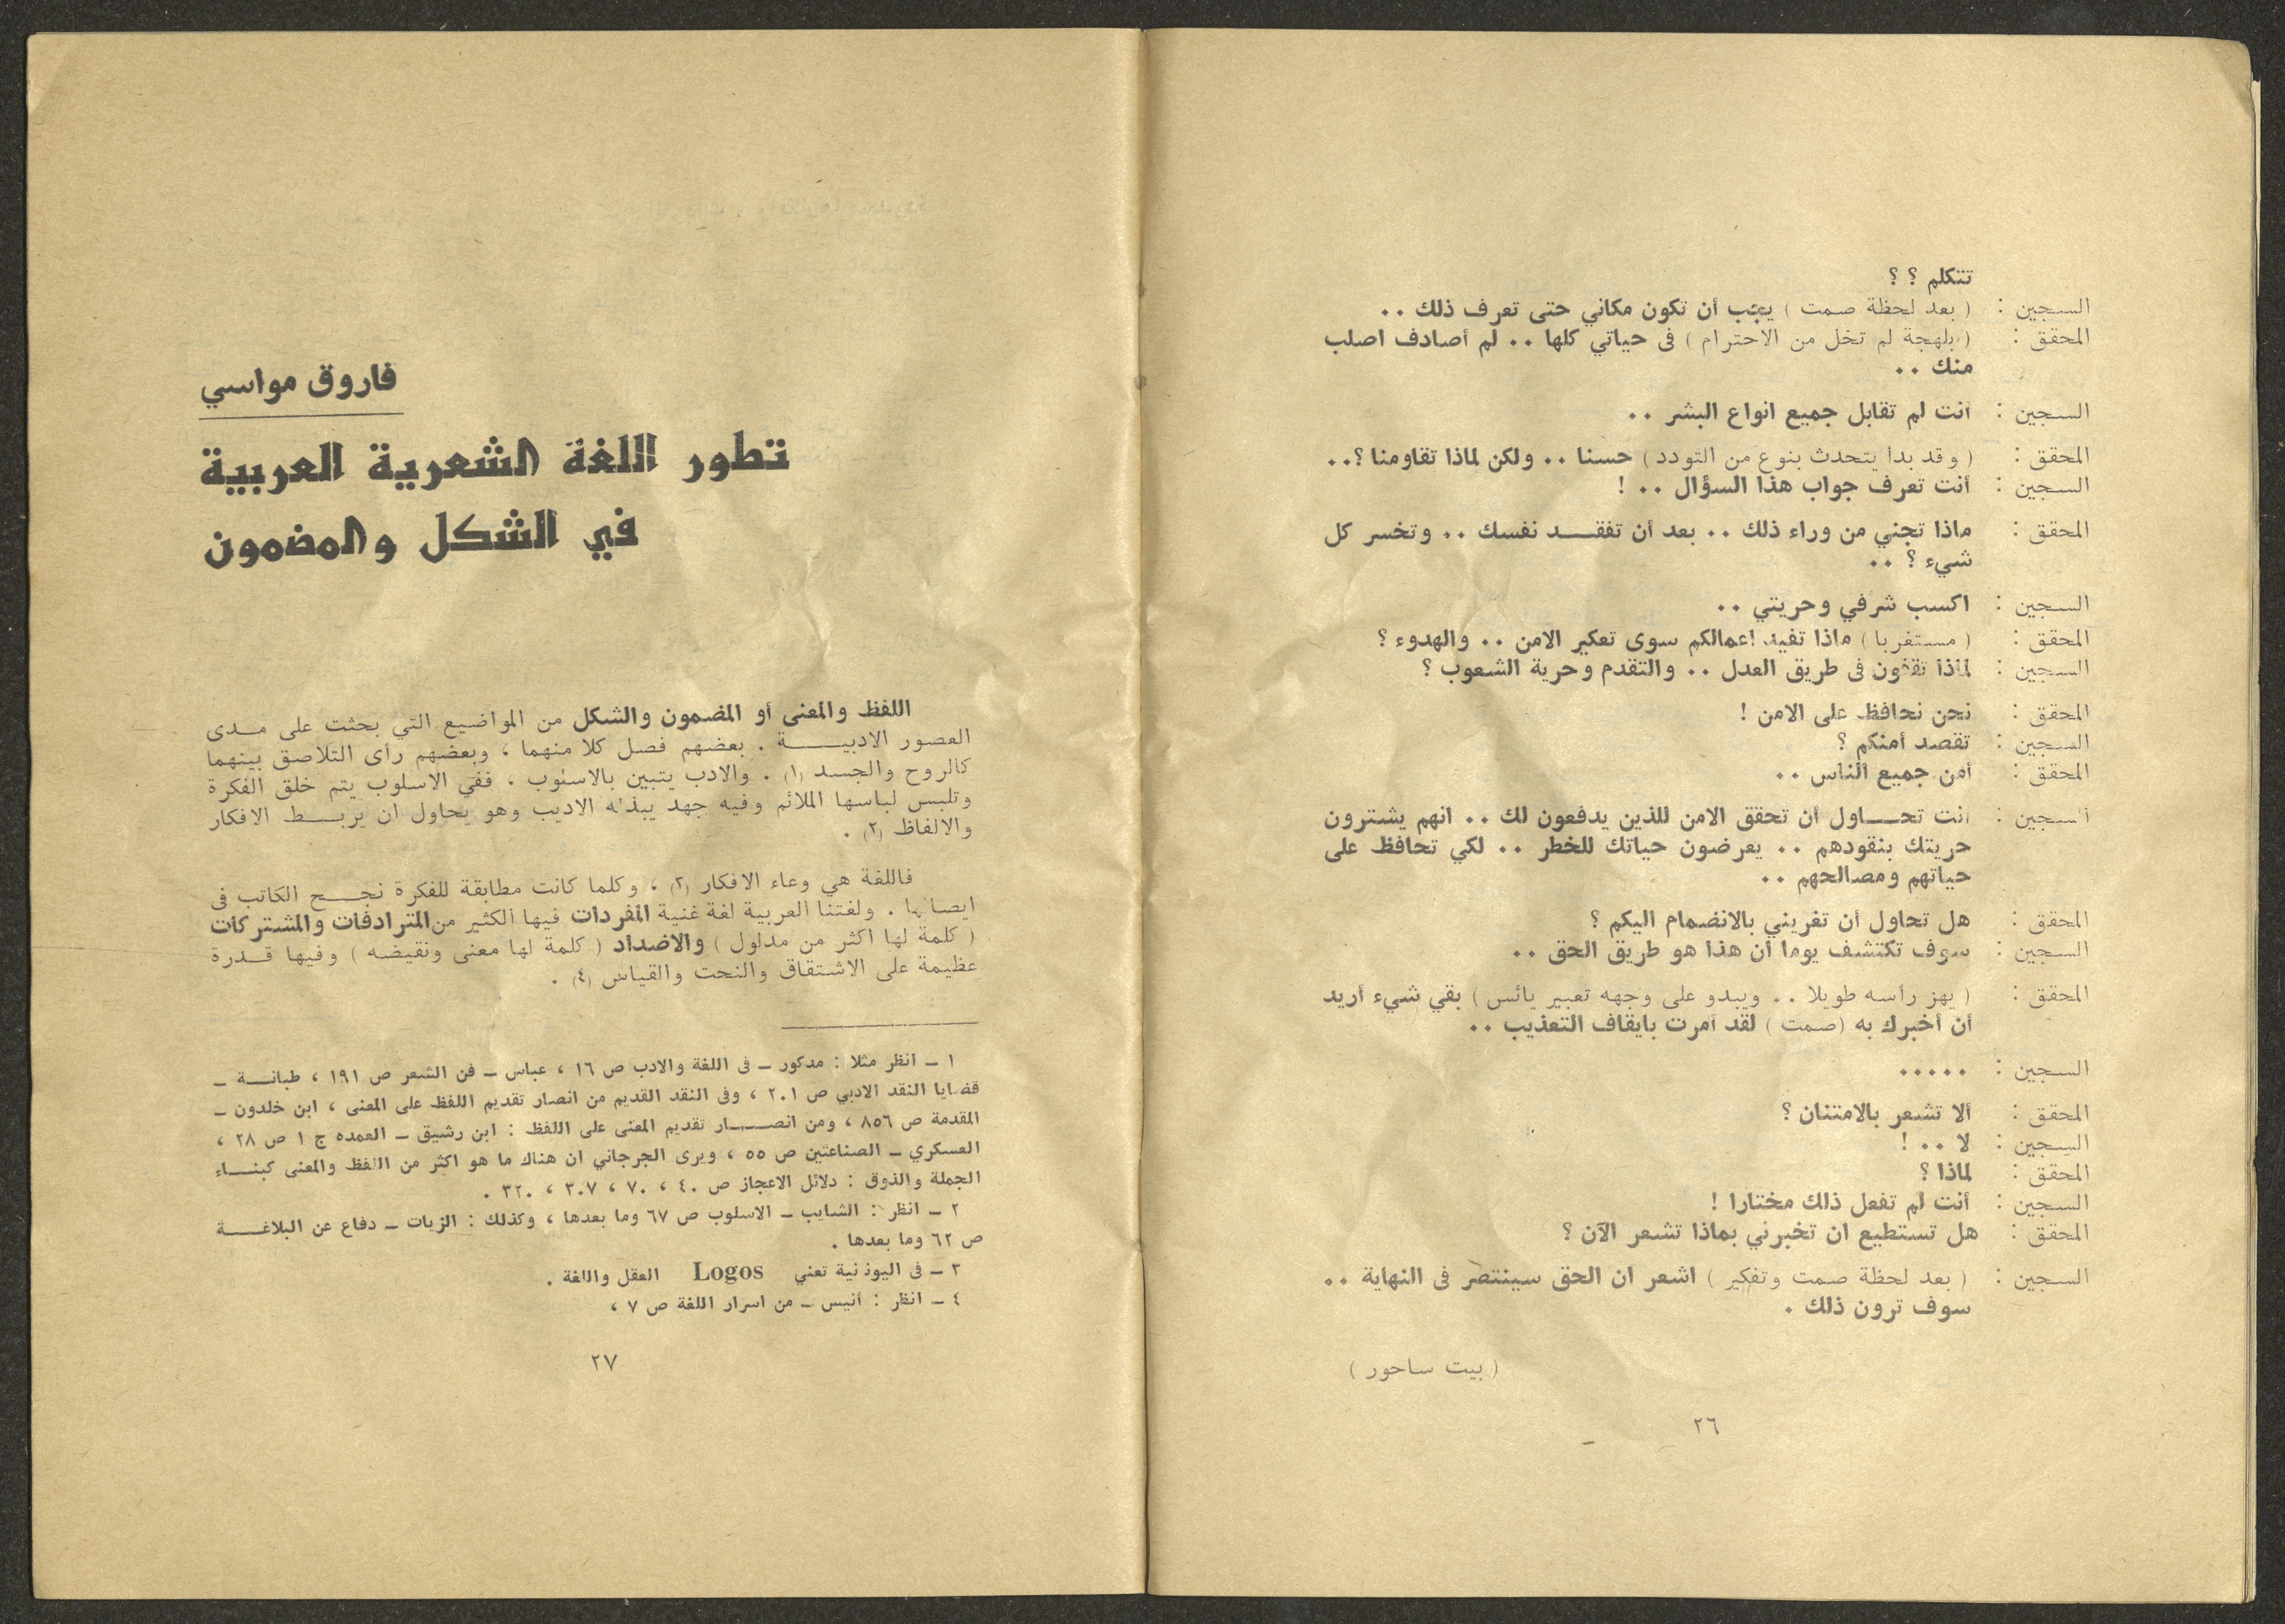 تتكلم ؟ ؟
السجين : ( بعد لحظة صمت ) يجب أن تكون مكاني حتى تعرف ذلك ..
المحقق : ( بلهجة لم تخل من الاحترام ) فى حياتي كلها .. لم أصادف اصلب
منك ..
السجين : أنت لم تقابل جميع انواع البشر ..
المحقق : ( وقد بدأ يتحدث بنوع من التودد ) حسنا .. ولكن لماذا تقاومنا ؟..
السجين : أنت تعرف جواب هذا السؤال .. !
المحقق : ماذا تجني من وراء ذلك .. بعد أن تفقــد نفسك .. وتخسر كل
شيء ؟ ..
السجين : اكسب شرفي وحريتي ..
المحقق : ( مستغربا ) ماذا تفيد اعمالكم سوى تعكير الامن .. والهدوء ؟
السجين : لماذا تقفون فى طريق العدل .. والتقدم وحرية الشعوب ؟
المحقق : نحن نحافظ على الامن !
السجين : تقصد أمنكم ؟
المحقق : أمن جميع الناس ..
السجين : أنت تحــاول أن تحقق الامن للذين يدفعون لك .. انهم يشترون
حريتك بنقودهم .. يعرضون حياتك للخطر .. لكي تحافظ على
حياتهم ومصالحهم ..
المحقق : هل تحاول أن تغريني بالانضمام اليكم ؟
السجين : سوف تكتشف يوما أن هذا هو طريق الحق ..
المحقق : ( يهز رأسه طويلا .. ويبدو على وجهه تعبير يائس ) بقي شيء أريد
أن أخبرك به (صمت ) لقد أمرت بايقاف التعذيب ..
السجين : .....
المحقق : ألا تشعر بالامتنان ؟
السجين : لا .. !
المحقق : لماذا ؟
السجين : أنت لم تفعل ذلك مختارا !
المحقق : هل تستطيع ان تخبرني بماذا تشعر الآن ؟
السجين : ( بعد لحظة صمت وتفكير ) اشعر ان الحق سينتصر فى النهاية ..
سوف ترون ذلك .
( بيت ساحور )
٢٦
فاروق مواسي
تطور اللغة الشعرية العربية
في الشكل والمضمون
اللفظ والمعنى أو المضمون والشكل من المواضيع التي بحثت على مــدى
العصور الادبيــــة . بعضهم فصل كلا منهما ، وبعضهم رأى التلاصق بينهما
كالروح والجسد (١) . والادب يتبين بالاسلوب ، ففي الاسلوب يتم خلق الفكرة
وتلبس لباسها الملائم وفيه جهد يبذله الاديب وهو يحاول ان يربــط الافكار
والالفاظ (٢) .
فاللغة هي وعاء الافكار (٣) ، وكلما كانت مطابقة للفكرة نجــح الكاتب فى
ايصالها . ولغتنا العربية لغة غنية المفردات فيها الكثير من المترادفات والمشتركات
( كلمة لها اكثر من مدلول ) والاضداد ( كلمة لها معنى ونقيضه ) وفيها قــدرة
عظيمة على الاشتقاق والنحت والقياس (٤) .
١ ــ انظر مثلا : مدكور ــ فى اللغة والادب ص ١٦ ، عباس ــ فن الشعر ص ١٩١ ، طبانــة ــ
قضايا النقد الادبي ص ٢٠١ ، وفى النقد القديم من انصار تقديم اللفظ على المعنى ، ابن خلدون ــ
المقدمة ص ٨٥٦ ، ومن انصــار تقديم المعنى على اللفظ : ابن رشيق ــ العمده ج ١ ص ٢٨ ،
العسكري ــ الصناعتين ص ٥٥ ، ويرى الجرجاني ان هناك ما هو اكثر من اللفظ والمعنى كبنــاء
الجملة والذوق : دلائل الاعجاز ص ٤٠ ، ٧٠ ، ٣٠٧ ، ٣٢٠ .
٢ ــ انظر : الشايب ــ الاسلوب ص ٦٧ وما بعدها ، وكذلك : الزيات ــ دفاع عن البلاغــة
ص ٦٢ وما بعدها .
٣ ــ فى اليونانية تعني Logos العقل واللغة .
٤ ــ انظر : أنيس ــ من اسرار اللغة ص ٧ ،
٢٧